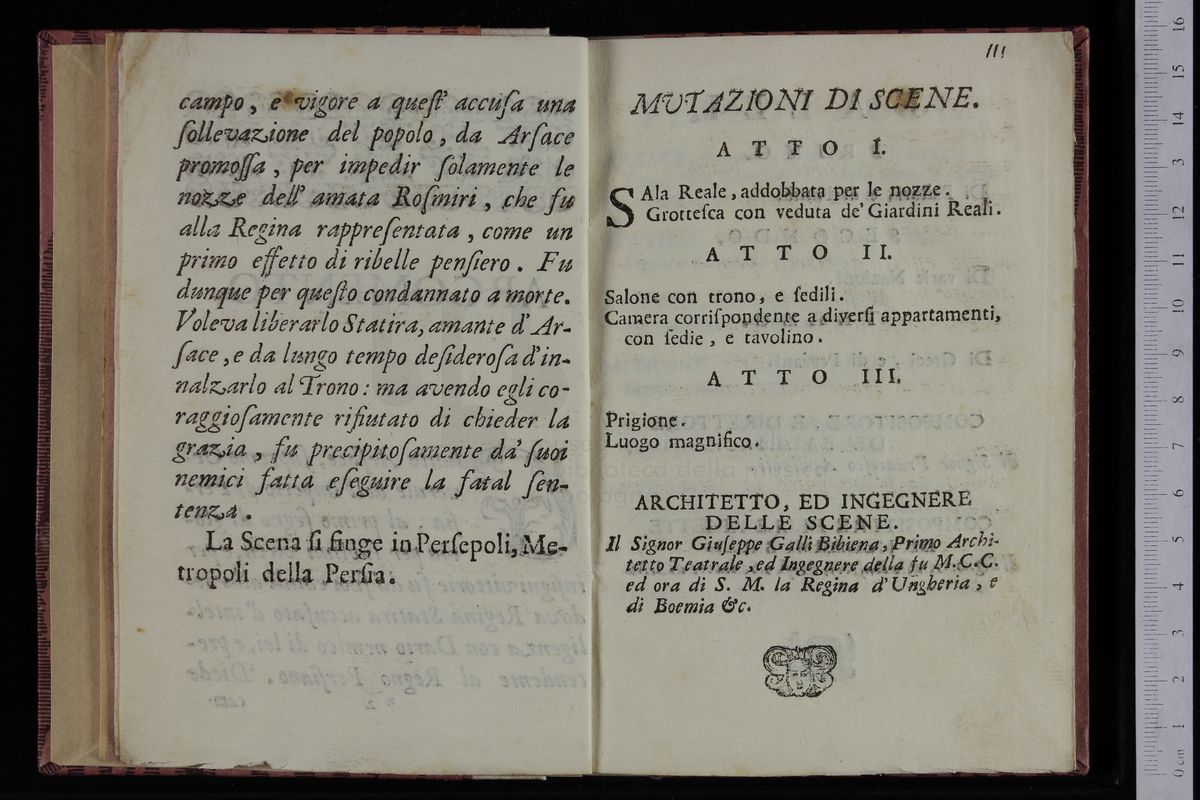 campo, e vigore a queſt' accuſa una
ſollevazione del popolo, da Arſace
promoſſa, per impedir ſolamente le
nozze dell' amata Roſmiri, che fu
alla Regina rappreſentata, come un
primo effetto di ribelle penſiero. Fu
dunque per queſto condannato a morte.
Voleva liberarlo Statira, amante d' Ar-
ſace, e da lungo tempo deſideroſa d' in-
nalzarlo al Trono: ma avendo egli co-
raggioſamente rifiutato di chieder la
grazia, fu precipitoſamente da' ſuoi
nemici fatta eſeguire la fatal ſen-
tenza.
La Scena ſi finge in Perſepoli, Me-
tropoli della Perſia.
III
MVTAZIONI DI SCENE.
ATTO I.
SAla Reale, addobbata per le nozze.
Grotteſca con veduta de' Giardini Reali.
ATTO II.
Salone con trono, e ſedili.
Camera corriſpondente a diverſi appartamenti,
con ſedie, e tavolino.
ATTO III.
Prigione.
Luogo magnifico.
ARCHITETTO, ED INGEGNERE
DELLE SCENE.
Il Signor Giuſeppe Galli Bibiena, Primo Archi-
tetto Teatrale, ed Ingegnere della fu M. C. C.
ed ora di S. M. la Regina d' Ungheria, e
di Boemia &c.
0 cm 1 2 3 4 5 6 7 8 9 10 11 12 13 14 15 16